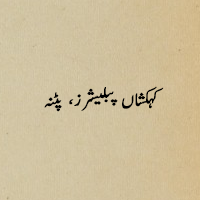 کہکشاں پبلیشرز، پٹنہ